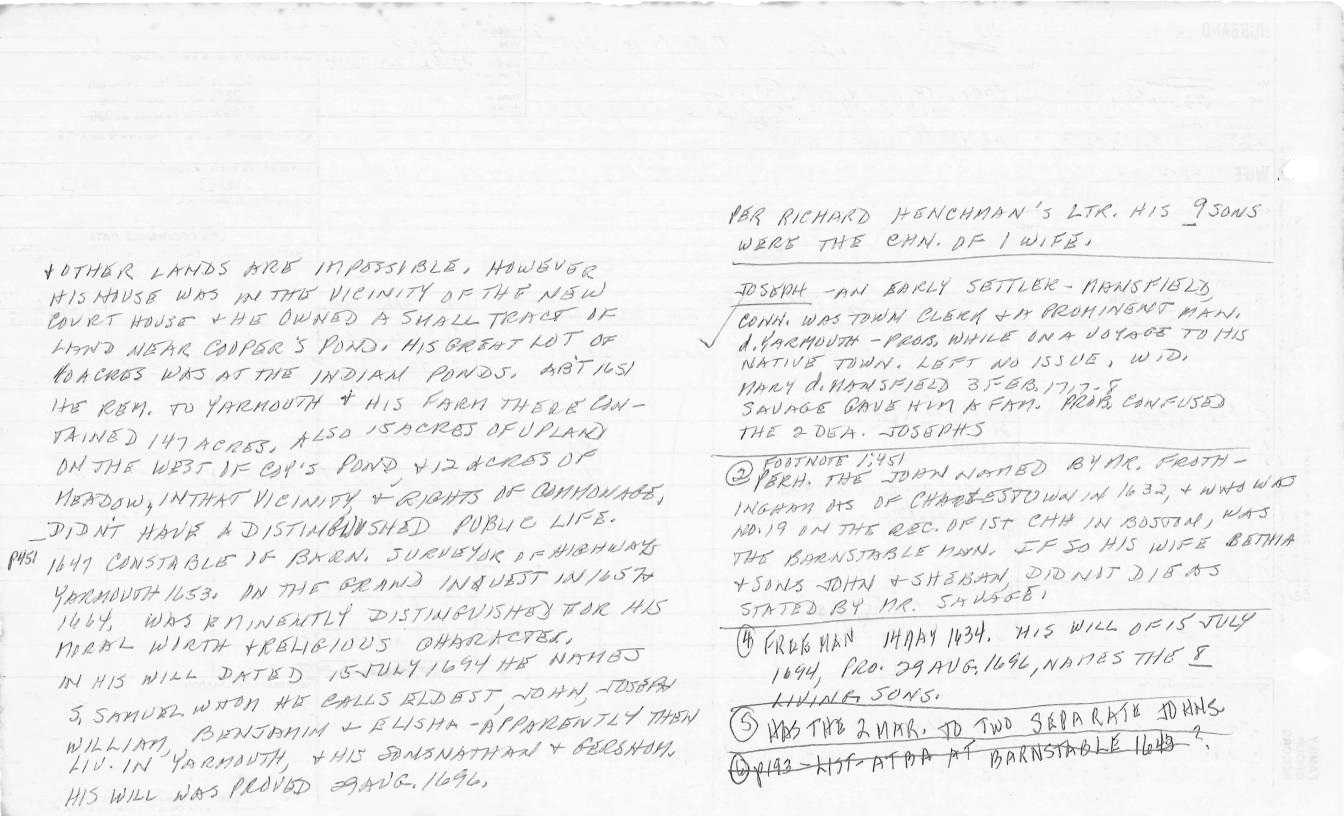 & OTHER LANDS ARE IMPOSSIBLE. HOWEVER
HIS HOUSE WAS IN THE VICINITY OF THE NEW
COURT HOUSE & HE OWNED A SMALL TRACT OF
LAND NEAR COOPER'S POND. HIS GREAT LOT OF
40 ACRES WAS AT THE INDIAN PONDS. ABT 1651
HE REM. TO YARMOUTH & HIS FARM THERE CON-
TAINED 147 ACRES. ALSO 15 ACRES OF UPLAND
ON THE WEST OF COY'S POND, & 12 ACRES OF
MEADOW, IN THAT VICINITY & RIGHTS OF COMMONAGE.
DIDN'T HAVE A DISTINGUISHED PUBLIC LIFE.
P451 1647 CONSTABLE OF BARN. SURVEYOR OF HIGHWAYS
YARMOUTH 1653. ON THE GRAND INQUEST IN 1657 &
1664. WAS EMINENTLY DISTINGUISHED FOR HIS
MORAL WORTH & RELIGIOUS CHARACTER.
IN HIS WILL DATED 15 JULY 1694 HE NAMES
S, SAMUEL WHOM HE CALLS ELDEST, JOHN, JOSEPH
WILLIAM, BENJAMIN & ELISHA - APPARENTLY THEN
LIV. IN YARMOUTH, & HIS SONS NATHAN & GERSHOM.
HIS WILL WAS PROVED 29 AUG. 1696.
PER RICHARD HENCHMAN'S LTR. HIS 9 SONS
WERE THE CHN. OF 1 WIFE.
JOSEPH - AN EARLY SETTLER - MANSFIELD,
CONN. WAS TOWN CLERK & A PROMINENT MAN.
d. YARMOUTH - PROB. WHILE ON A VOYAGE TO HIS
NATIVE TOWN. LEFT NO ISSUE. WID.
MARY d. MANSFIELD 3 FEB. 1717-8
SAVAGE GAVE HIM A FAM. PROB. CONFUSED
THE 2 DEA. JOSEPHS
FOOTNOTE 1:451
② PERH. THE JOHN NAMED BY MR. FROTH-
INGHAM AS OF CHARLESTOWN IN 1632, & WHO WAS
NO. 19 ON THE REC. OF 1ST CHH IN BOSTON, WAS
THE BARNSTABLE MAN. IF SO HIS WIFE BETHIA
& SONS JOHN & SHEBAN, DID NOT DIE AS
STATED BY MR. SAVAGE.
④ FREEMAN 14 MAY 1634. HIS WILL OF 15 JULY
1694, PRO. 29 AUG. 1696, NAMES THE 8
LIVING SONS.
⑤ HAS THE 2 MAR. TO TWO SEPARATE JOHNS
⑥ p193 - LIST - ATBA AT BARNSTABLE 1643 ?